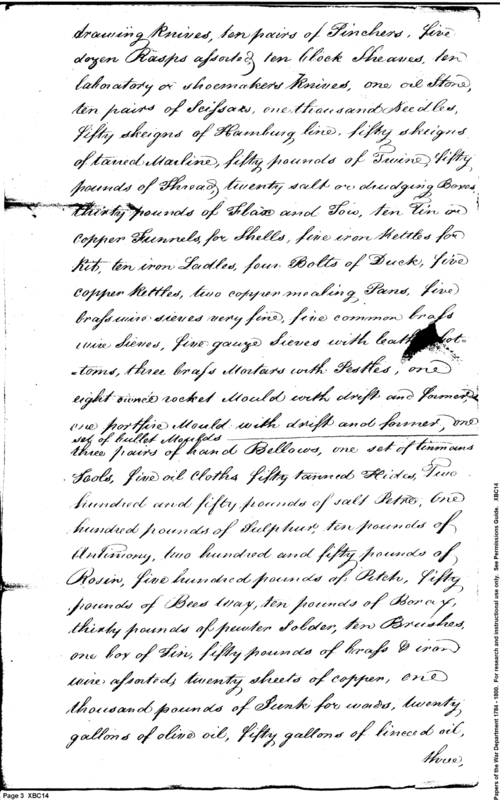 drawing Knives, ten pairs of Pinchers, five
dozen Rasps assorted, ten block Sheaves, ten
labonatory or shoemakers Knives, one oil Stone,
ten pairs of Scissars, one thousand Needles,
fifty skeigns of Hamburg line, fifty skeigns
of tarred Marline, fifty pounds of Twine, fifty
pounds of Thread, twenty salt or drudging Boxes
thirty pounds of Flax and Tow, ten Tin or
copper Funnels, for Shells, five iron Kettles for
Kit, ten iron Ladles, four Bolts of Duck, five
copper Kettles, two copper mealing Pans, five
brass wire sieves very fine, five common brass
wire Sieves, five gauze Sieves with leath bot-
-toms, three brass Mortars with Pestles, one
eight ounce rocket Mould with drift and former,
one portfire Mould with drift and former, one
set of bullet Moulds
three pairs of hand Bellows, one set of tinmans
Tools, five oil Cloths, fifty tanned Hides, Two
hundred and fifty pounds of salt Petre, One
hundred pounds of Sulphur, ten pounds of
Antimony, two hundred and fifty pounds of
Rosin, five hundred pounds of Pitch, fifty
pounds of Bees Wax, ten pounds of Borax,
thirty pounds of pewter Solder, ten Brushes,
one box of Tin, fifty pounds of brass & iron
wire assorted, twenty sheets of copper, one
thousand pounds of Junk for wads, twenty
gallons of olive oil, fifty gallons of linceed oil,
three,
Page 3 XBC14
Papers of the War Department 1784 - 1800. For research and instructional use only. See Permissions Guide. XBC14